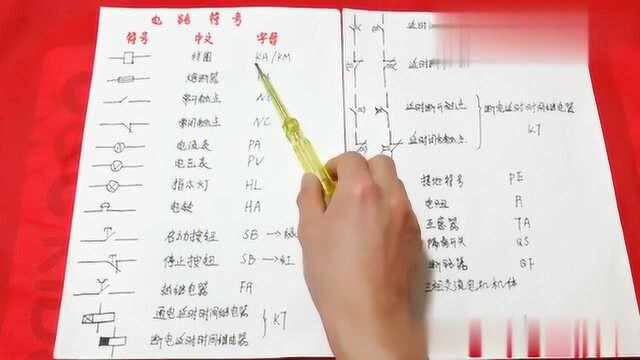 电路符号
符号 中文 字母
线圈 KA/KM
熔断器
常开触点 N
常闭触点 NC
电流表 PA
电压表 PV
指示灯 HL
电铃 HA
启动按钮 SB → 绿
停止按钮 SB → 红
热继电器 FR
通电延时时间继电器
断电延时时间继电器
KT
延时
延时
延时断开触点
延时闭合触点
断电延时时间继电器
KT
接地符号 PE
电阻 R
互感器 TA
隔离开关 QS
断路器 QF
三相交流电机机体